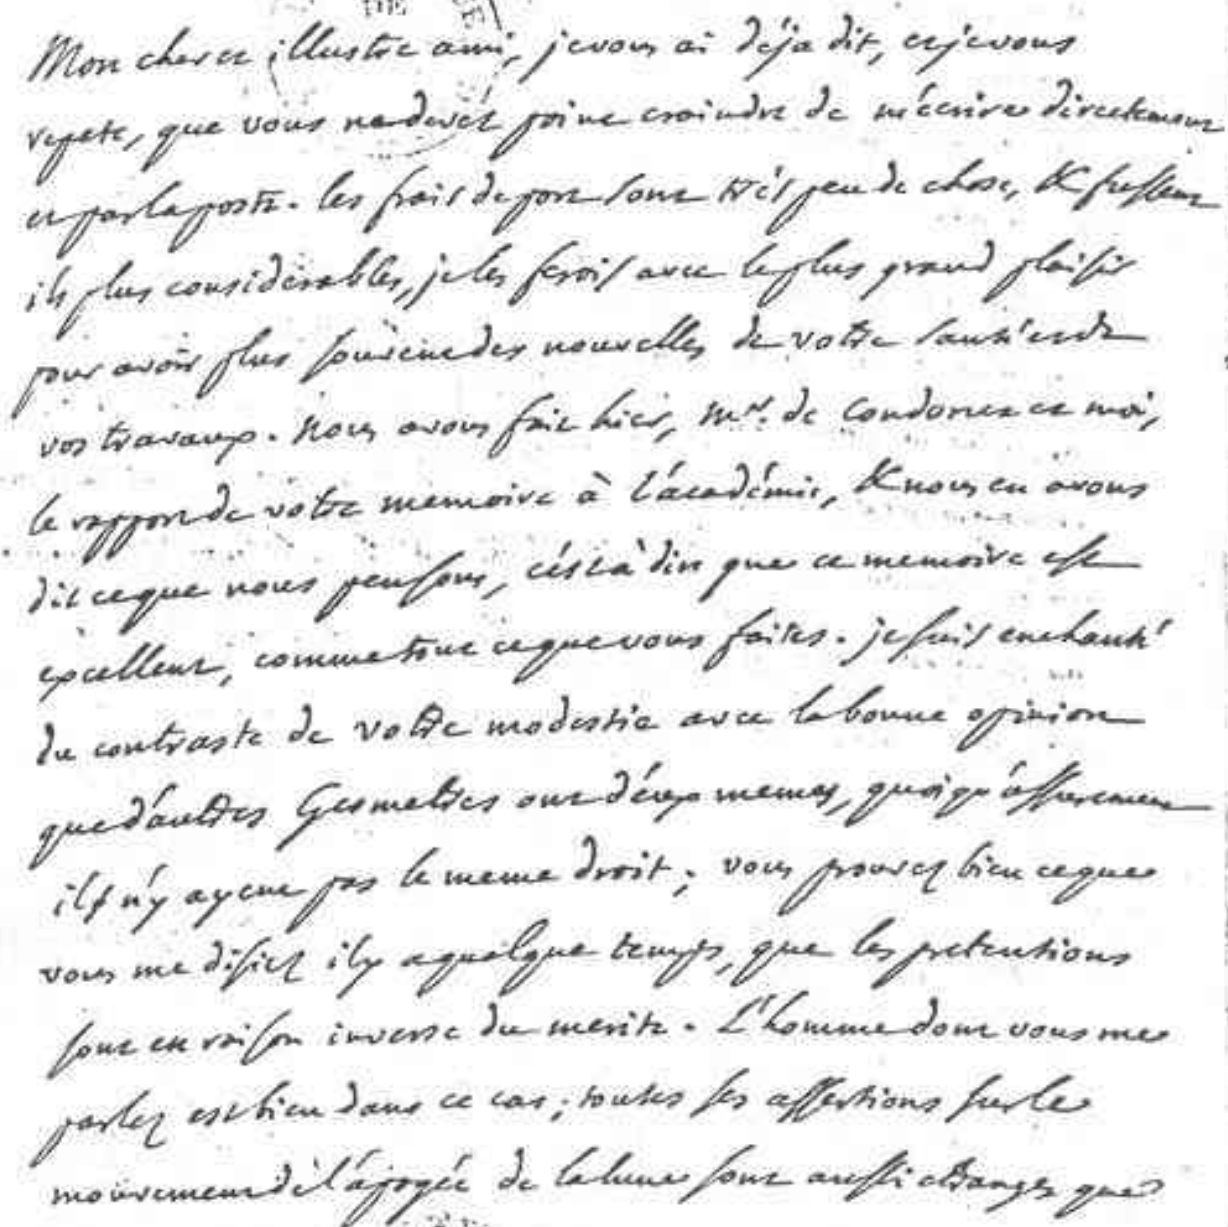 DE
Mon cher et illustre ami, je vous ai déja dit, et je vous
repete, que vous ne devez point craindre de m'écrire directement
et par la poste. les frais de port sont trés peu de chose, & fussent
ils plus considerables, je les ferois avec le plus grand plaisir
pour avoir plus souvent des nouvelles de votre santé et de
vos travaux. Nous avons fait hier, Mr. de Condorcet et moi,
le rapport de votre memoire à l'académie, & nous en avons
dit ce que nous pensons, c'est à dire que ce memoire est
excellent, comme tout ce que vous faites. je suis enchanté
du contraste de votre modestie avec la bonne opinion
que d'autres Geometres ont d'eux memes, quoiqu'assurement
ils n'y ayent pas le meme droit; vous prouvez bien ce que
vous me disiez il y a quelque temps, que les pretentions
sont en raison inverse du merite. L'homme dont vous me
parlez est bien dans ce cas; toutes ses assertions sur le
mouvement de l'apogée de la lune sont aussi etranges que